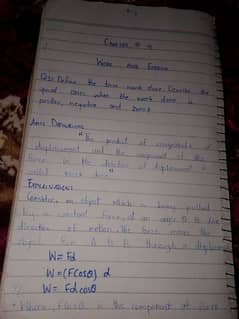 Chapter # 4
Work and Energy
Q1: Define the term work done. Describe the
special cases when the work done is
positive, negative and zero?
Ans: Definition:
"The product of magnitude of
displacement and the component of the
force in the direction of displacement is
called work done"
Explanation:
Consider an object which is being pulled
by a constant force at an angle θ to the
direction of motion. The force moves the
object from A to B through a displacement
W = Fd
W = (Fcosθ) d
W = Fd cosθ
Where, Fcosθ is the component of force